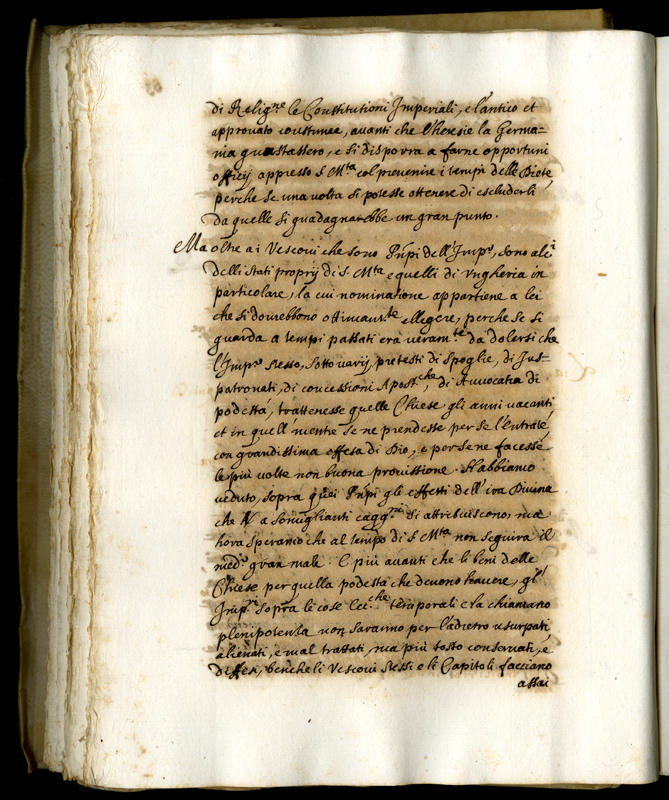 di Relig.ne le Constitutioni Imperiali, e l'antico et
approvato costume, avanti che l'heresie la Germa=
nia guastassero, e si disporra a farne opportuni
officij appresso S. M.ta col prevenire i tempi delle Diete,
perche se una volta si potesse ottenere di escluderli
da quelle si guadagnarebbe un gran punto.
Ma oltre a i Vescovi che sono Pn̄pi dell'Imp.o, sono altri
delli stati proprij di S. M.ta e quelli di Vngheria in
particolare, la cui nominatione appartiene a lei
che si dovrebbono ottimam.te ellegere, perche se si
guarda a tempi passati era veram.te da dolersi che
l'Imp.re stesso, sotto varij pretesti di spoglie, di Jus=
patronati, di concessioni Apost.che, di Avvocatia di
podestà, trattenesse quelle Chiese gli anni vacanti,
et in quell mentre se ne prendesse per se l'entrate,
con grandissima offesa di Dio, e poi se ne facesse
le più volte non buona provissione. Habbiamo
veduto, sopra quei Pn̄pi gli effetti dell'ira Divina
che a somiglianti cagg.ni si attribuiscono, ma
hora speriamo che al tempo di S. M.ta non seguirà il
med.o gran male. E più avanti che li beni delle
Chiese per quella podestà che devono havere, gl'
Imp.ri sopra le cose Ecc.che temporali e la chiamano
plenipotenza non saranno per l'adietro usurpati,
alienati, e mal trattati, ma più tosto conservati, e
difesi, benche li Vescovi stessi e li Capitoli facciano
assai